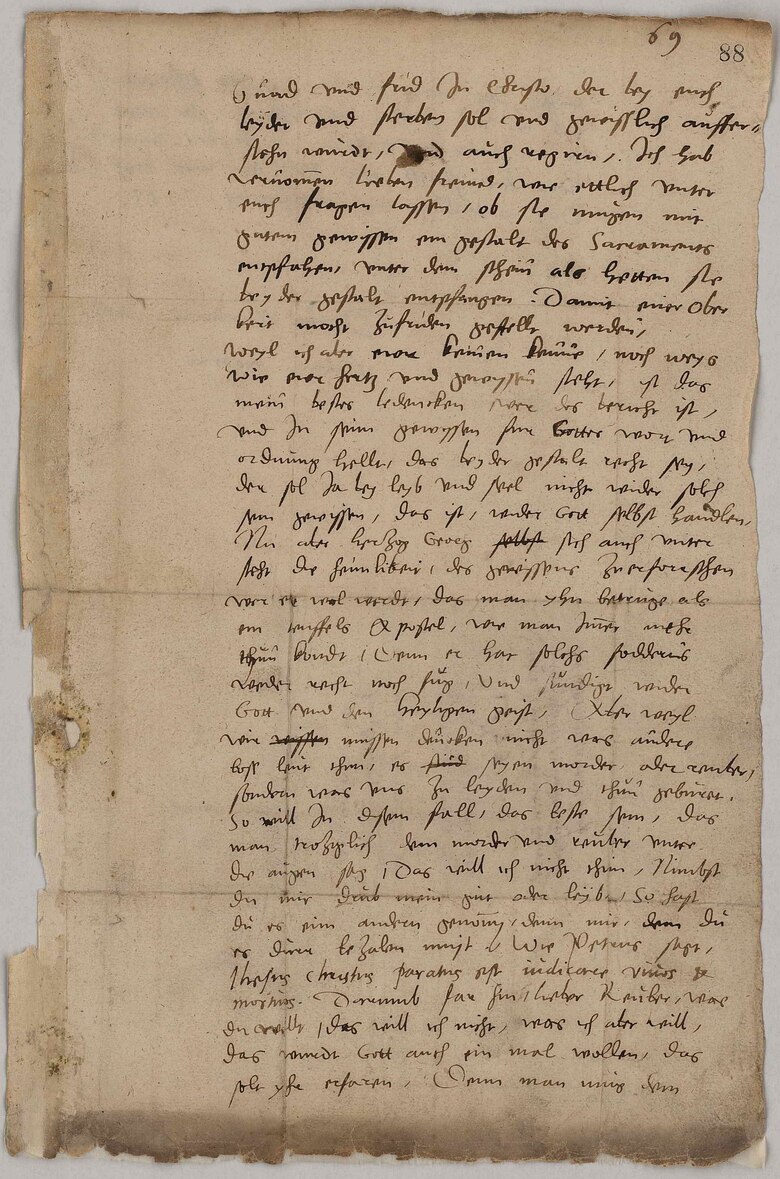 69
88
Gnad und frid In Christo. der bey euch
leyder und sterben sol und gewisslich auffer-
stehn wirdt, und auch regirn, Ich hab
vernomen lieben freund, wie ettlich unter
euch fragen lassen, ob sie mugen mit
gutem gewissen ein gestalt des Sacraments
entpfahen, unter dem schein als hetten sie
beyder gestalt entpfangen. Damit ewer Ober
keit mocht zufriden gestellt werden,
weyl ich aber ewr keinen kenne, noch weys
wie ewr hertz und gewyssen steht, ist das
mein bestes bedencken wer des bericht ist,
und In seim gewyssen fur Gottes wort und
ordnung hellt, das beyder gestalt recht sey,
der sol Ja bey leyb und seel nicht wider solch
sein gewissen, das ist, wider Gott selbst handlen,
Nu aber hertzog Georg selbst sich auch unter
steht die heimlikeit des gewissens zu erforschen
wer er wol werdt, das man yhn betruge als
ein teuffels Apostel, wie man Imer mehr
thun kondt, Denn er hat solchs foddern
weder recht noch fug, Und sundigt wider
Gott und den heyligen geist, Aber weyl
wir wissen mussen dencken nicht was andere
bose leut thun, es sind seyen morder oder reuber,
sondern was uns zu leyden und thun geburet.
So will In disem fall, das beste sein, das
man trotzlich dem morder und reuber unter
die augen sag, Das will ich nicht thun, Nimbst
du mir drub mein gut oder leyb, So hast
du es eim andern genomen denn mir, dem du
es durr bezalen must, Wie Petrus sagt,
Ihesus Christus paratus est iudicare vivos &
mortuos. Darumb far hin lieber Reuber, was
du willt, das will ich nicht, was ich aber will,
das wirdt Gott auch ein mal wollen, das
solt yhr erfaren, Denn man mus dem